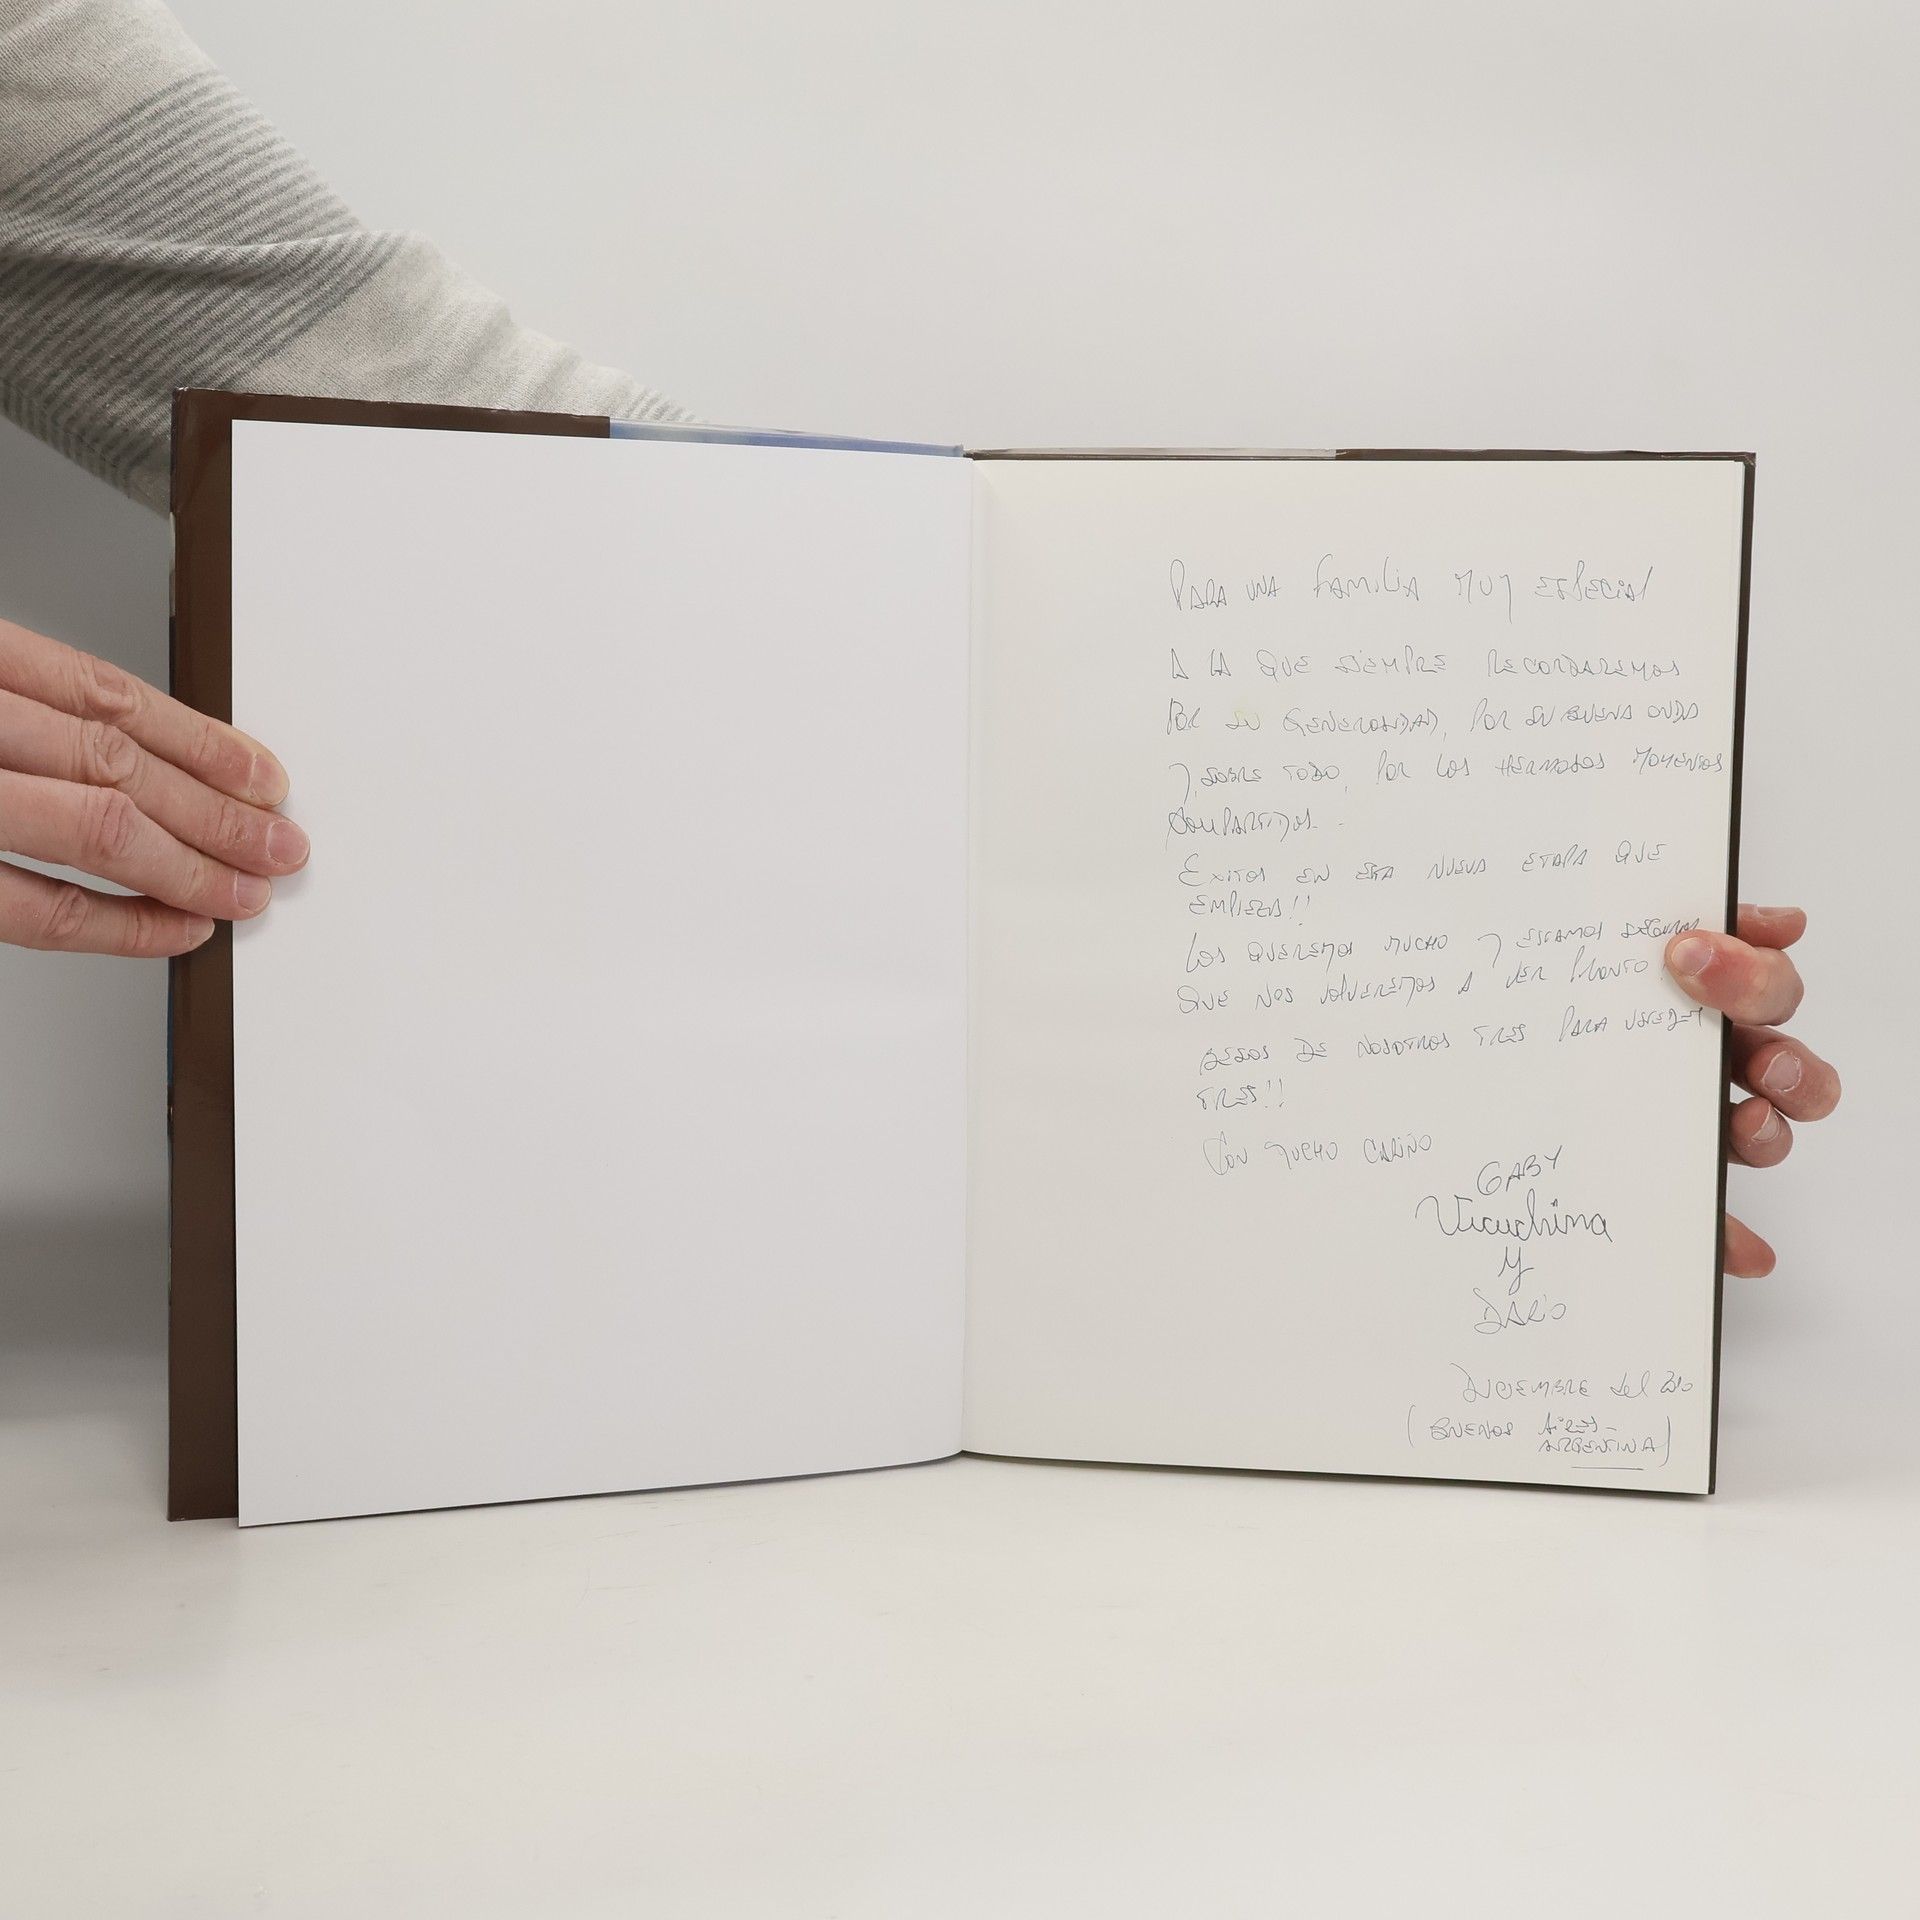 PARA UNA FAMILIA MUY ESPECIAL
A LA QUE SIEMPRE RECORDAREMOS
POR SU GENEROSIDAD, POR SU BUENA ONDA
Y, SOBRE TODO, POR LOS HERMOSOS MOMENTOS
COMPARTIDOS.-
EXITOS EN ESTA NUEVA ETAPA QUE
EMPIEZA!!
LOS QUEREMOS MUCHO Y ESTAMOS SEGUROS
QUE NOS VOLVEREMOS A VER PRONTO!
BESOS DE NOSOTROS TRES PARA USTEDES
TRES!!
CON MUCHO CARIÑO
GABY
Vicuchina
y
DARÍO
DICIEMBRE del
(BUENOS AIRES-
ARGENTINA)